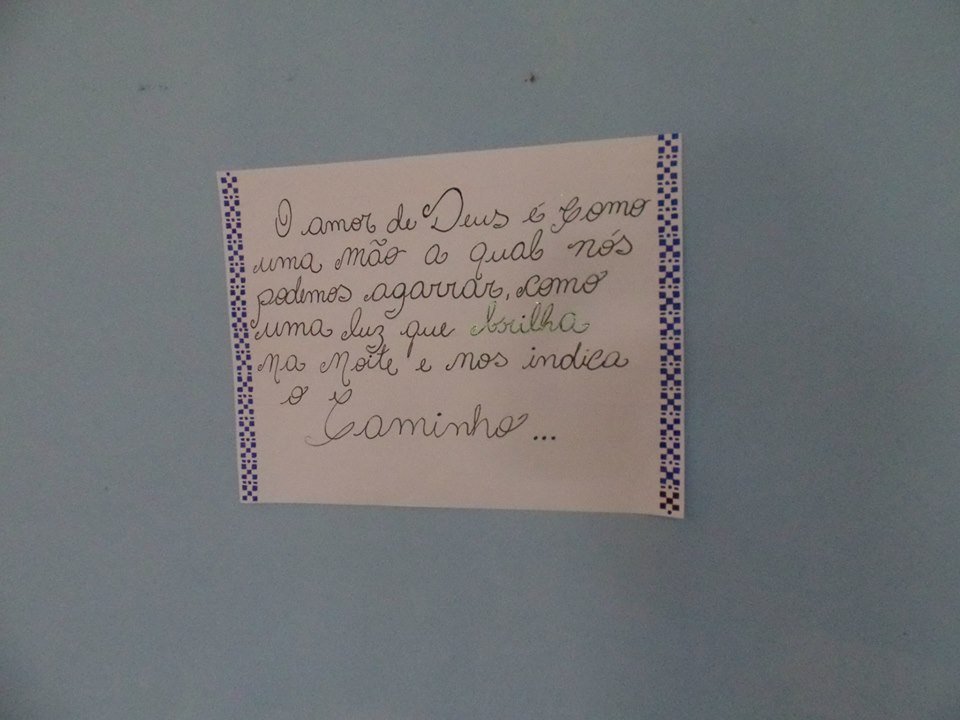 O amor de Deus é como
uma mão a qual nós
podemos agarrar, como
uma luz que brilha
na noite e nos indica
o
Caminho...